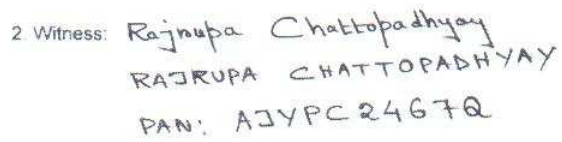 2. Witness: Rajrupa Chattopadhyay
RAJRUPA CHATTOPADHYAY
PAN: AJYPC2467Q